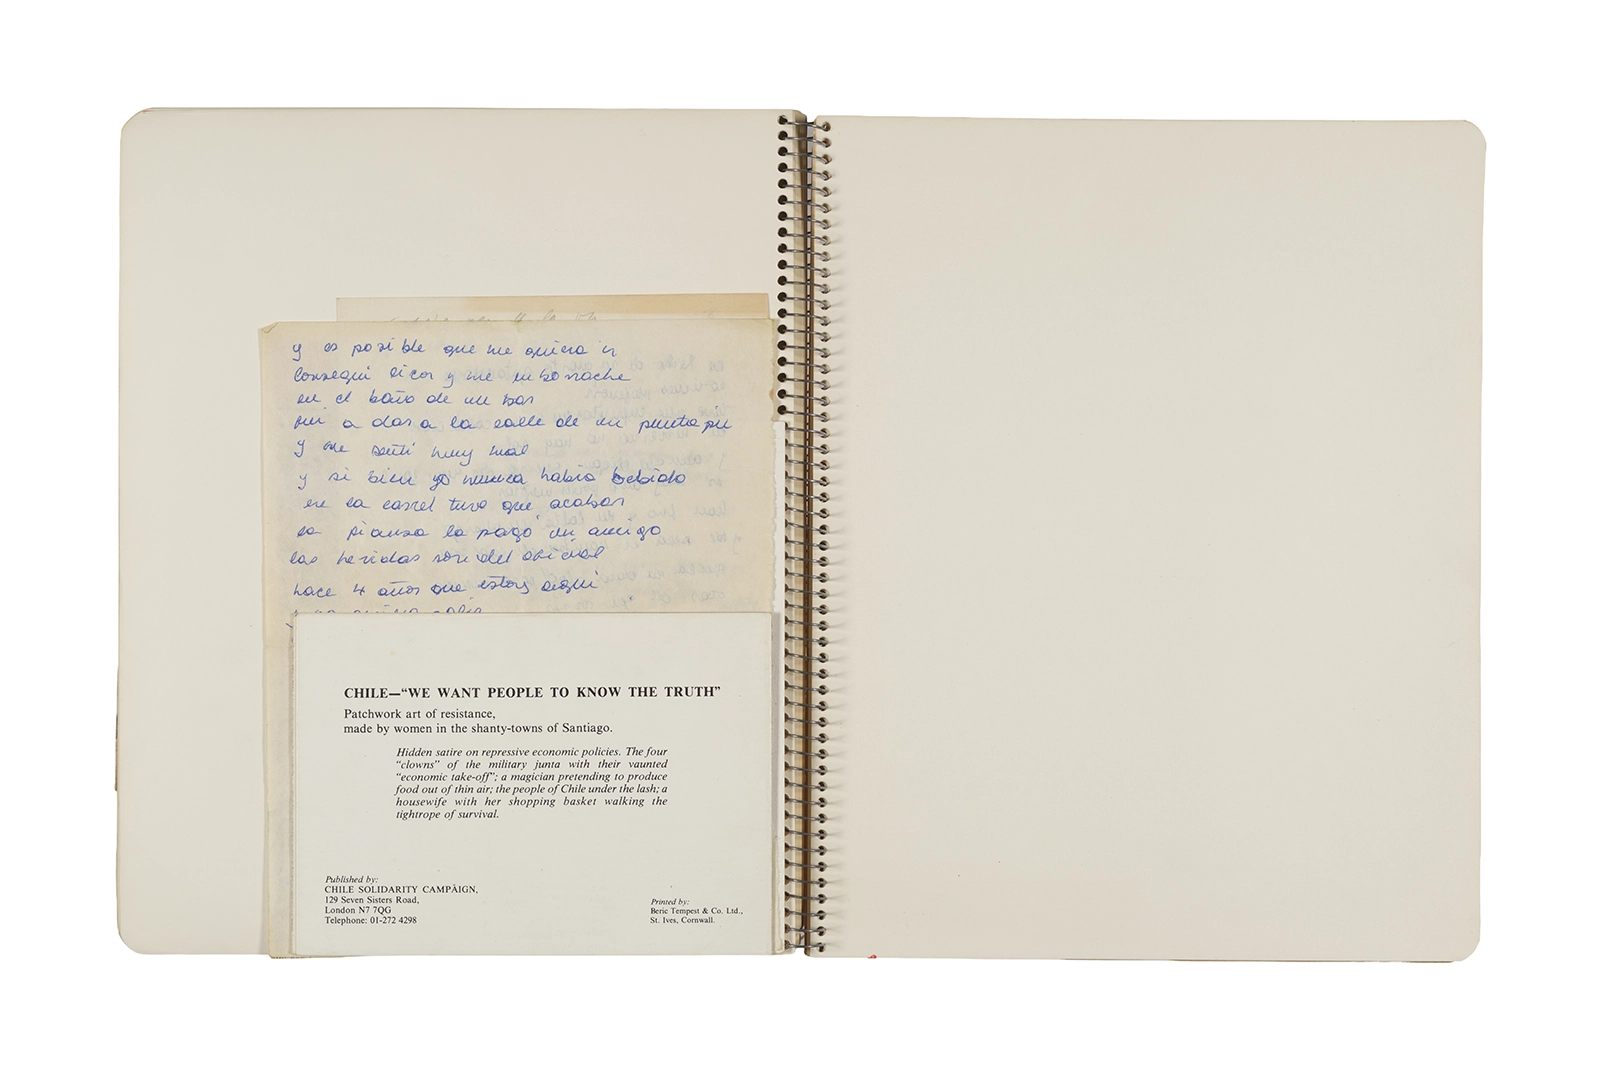 y es posible que me quiera ir
consegui licor y me enborrache
en el baño de un bar
fui a dar a la calle de un puntapie
y me senti muy mal
y si bien yo nunca habia bebido
en la carcel tuve que acabar
la fianza la pagó un amigo
las heridas son del oficial
hace 4 años que estoy aqui
CHILE—“WE WANT PEOPLE TO KNOW THE TRUTH”
Patchwork art of resistance,
made by women in the shanty-towns of Santiago.
Hidden satire on repressive economic policies. The four
“clowns” of the military junta with their vaunted
“economic take-off”; a magician pretending to produce
food out of thin air; the people of Chile under the lash; a
housewife with her shopping basket walking the
tightrope of survival.
Published by:
CHILE SOLIDARITY CAMPAIGN,
129 Seven Sisters Road,
London N7 7QG
Telephone: 01-272 4298
Printed by:
Beric Tempest & Co. Ltd.,
St. Ives, Cornwall.